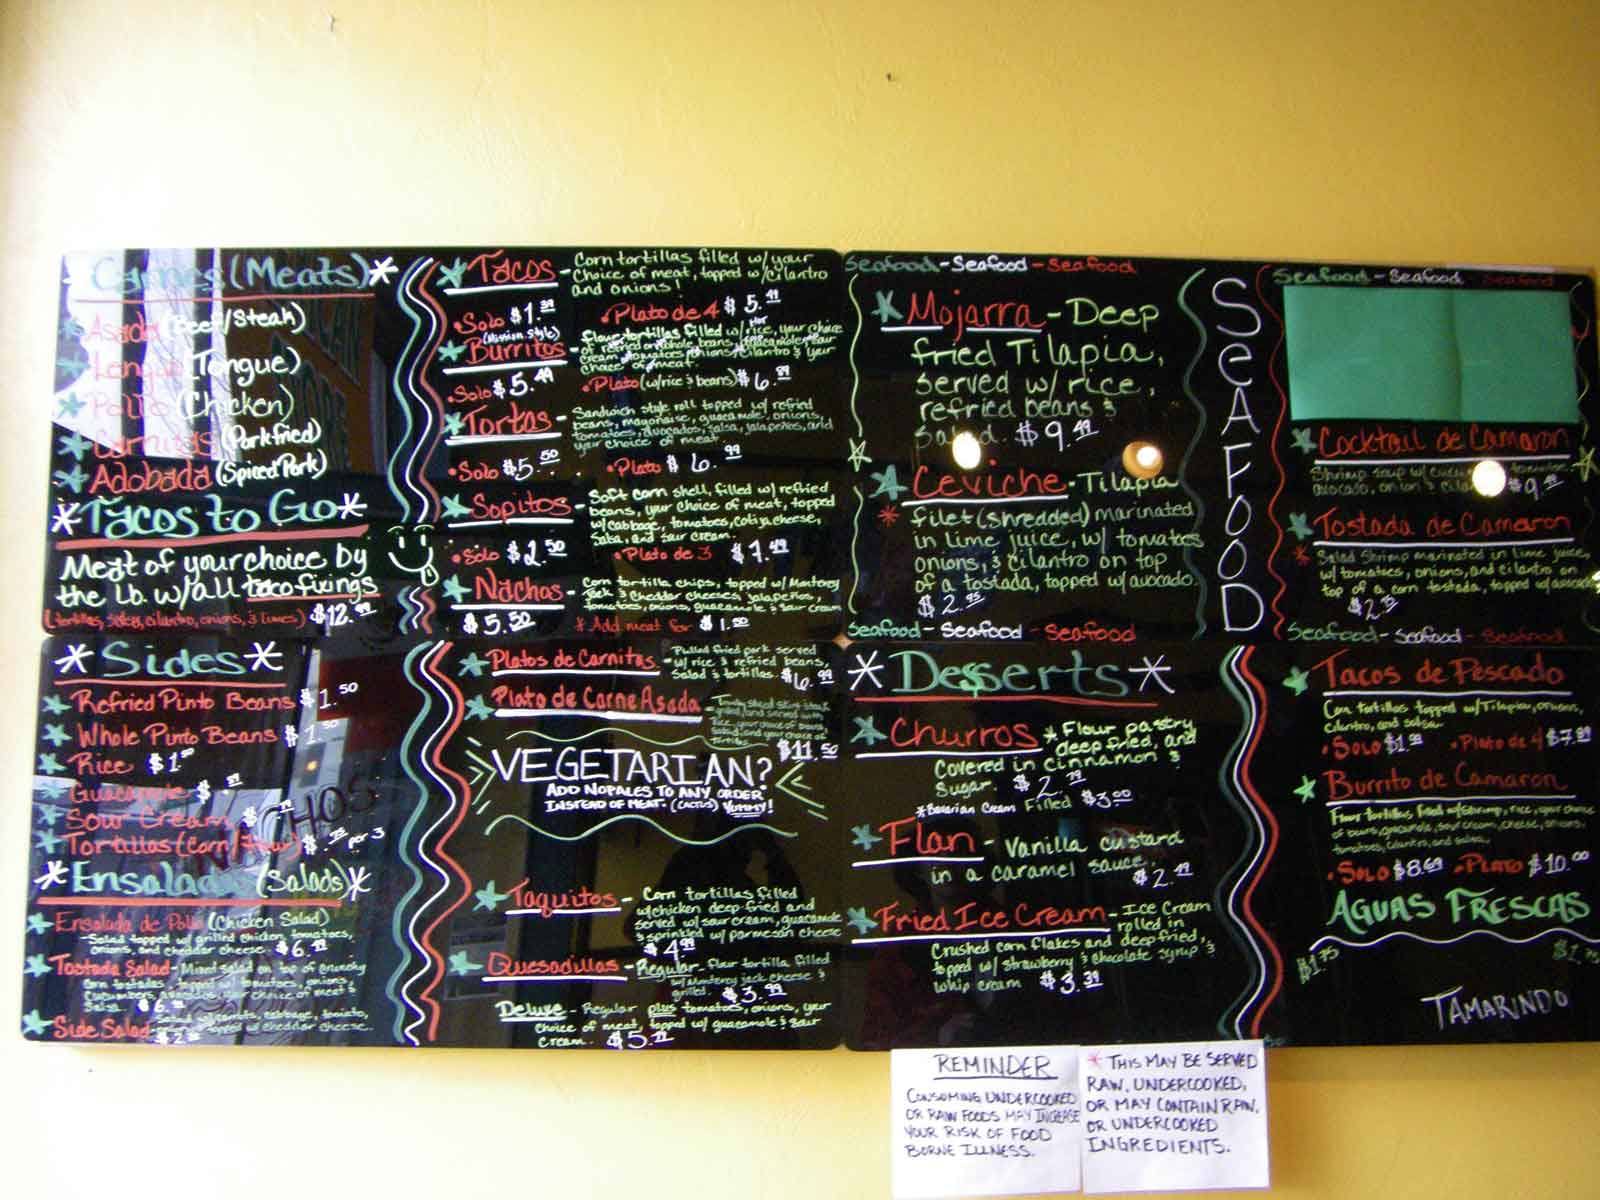 Carnes (Meats)*
Asada (Beef/Steak)
Lengua (Tongue)
Pollo (Chicken)
Carnitas (Pork fried)
Adobada (Spiced Pork)
*Tacos to Go*
Meat of your choice by
the Lb. w/all taco fixings
(tortillas, salsa, cilantro, onions, & limes) $12.99
Tacos - Corn tortillas filled w/your
choice of meat, topped w/cilantro
and onions!
•Solo $1.39 •Plato de 4 $5.49
(Mission Style)
Burritos - Flour tortillas filled w/rice, your choice
of refried or whole beans, guacamole, sour
cream, tomatoes, onions, cilantro & your
choice of meat.
•Solo $5.49 •Plato (w/rice & beans) $6.89
Tortas - Sandwich style roll topped w/ refried
beans, mayonaise, guacamole, onions,
tomatoes, avocados, salsa, jalapeños, and
your choice of meat.
•Solo $5.50 •Plato $6.99
Sopitos - Soft corn shell, filled w/ refried
beans, your choice of meat, topped
w/cabbage, tomatoes, cotija cheese,
Salsa, and sour cream.
•Solo $2.50 •Plato de 3 $7.49
Nachos - Corn tortilla chips, topped w/ Monterey
Jack & cheddar cheeses, jalapeños,
tomatoes, onions, guacamole & sour cream
$5.50 * Add meat for $1.50
Seafood - Seafood - Seafood
Mojarra - Deep
fried Tilapia,
served w/ rice,
refried beans &
Salad. $9.49
Ceviche - Tilapia
* filet (shredded) marinated
in lime juice, w/ tomatoes
onions, & cilantro on top
of a tostada, topped w/avocado.
$2.95
Seafood - Seafood - Seafood
SeAFOOD
Seafood - Seafood Seafood
Cocktail de Camaron
Shrimp soup w/ tomatoes,
avocado, onion & $9.
Tostada de Camaron
* Salad Shrimp marinated in lime juice,
w/ tomatoes, onions, and cilantro on
top of a corn tostada, topped w/avocado
$2.75
Seafood - Seafood - Seafood
*Sides*
Refried Pinto Beans $1.50
Whole Pinto Beans $1.50
Rice $1.50
Guacamole $
Sour Cream $
Tortillas (Corn/Flour) $ per 3
*Ensaladas (Salads)*
Ensalada de Pollo (Chicken Salad)
-Salad topped w/ grilled chicken, tomatoes,
onions, and cheddar cheese. $6.
Tostada Salad - Mixed salad on top of crunchy
corn tostadas, topped w/ tomatoes, onions,
cucumbers, avocados, your choice of meat &
Salsa. $6.
Side Salad - w/carrots, cabbage, tomato,
topped w/ cheddar cheese.
$2.
Platos de Carnitas - Pulled fried pork served
w/ rice & refried beans,
Salad & tortillas. $6.99
Plato de Carne Asada -
$11.50
VEGETARIAN?
ADD NOPALES TO ANY ORDER
INSTEAD OF MEAT. (CACTUS) YUMMY!
Taquitos - Corn tortillas filled
w/chicken deep-fried and
served w/ sour cream, guacamole
& sprinkled w/ parmesan cheese
$4.99
Quesadillas - Regular - flour tortilla filled
w/Monterey jack cheese &
grilled. $3.99
Deluxe - Regular plus tomatoes, onions, your
choice of meat, topped w/ guacamole & sour
cream. $5.
*Desserts*
Churros * Flour pastry
deep fried, and
Covered in cinnamon &
Sugar. $2.79
*Bavarian Cream Filled $3.00
Flan - Vanilla custard
in a caramel sauce.
$2.49
Fried Ice Cream - Ice Cream
rolled in
Crushed corn flakes and deep fried,
topped w/ strawberry & chocolate syrup &
whip cream $3.39
Tacos de Pescado
Corn tortillas topped w/Tilapia, onions,
cilantro, and salsa.
•Solo $1.99 •Plato de 4 $7.89
Burrito de Camaron
Flour tortillas filled w/Shrimp, rice, your choice
of beans, guacamole, sour cream, cheese, onions,
tomatoes, cilantro, and salsa.
•Solo $8.69 •Plato $10.00
AGUAS FRESCAS
$1.75 $1.75
TAMARINDO
REMINDER
CONSUMING UNDERCOOKED
OR RAW FOODS MAY INCREASE
YOUR RISK OF FOOD
BORNE ILLNESS.
* THIS MAY BE SERVED
RAW, UNDERCOOKED,
OR MAY CONTAIN RAW,
OR UNDERCOOKED
INGREDIENTS.